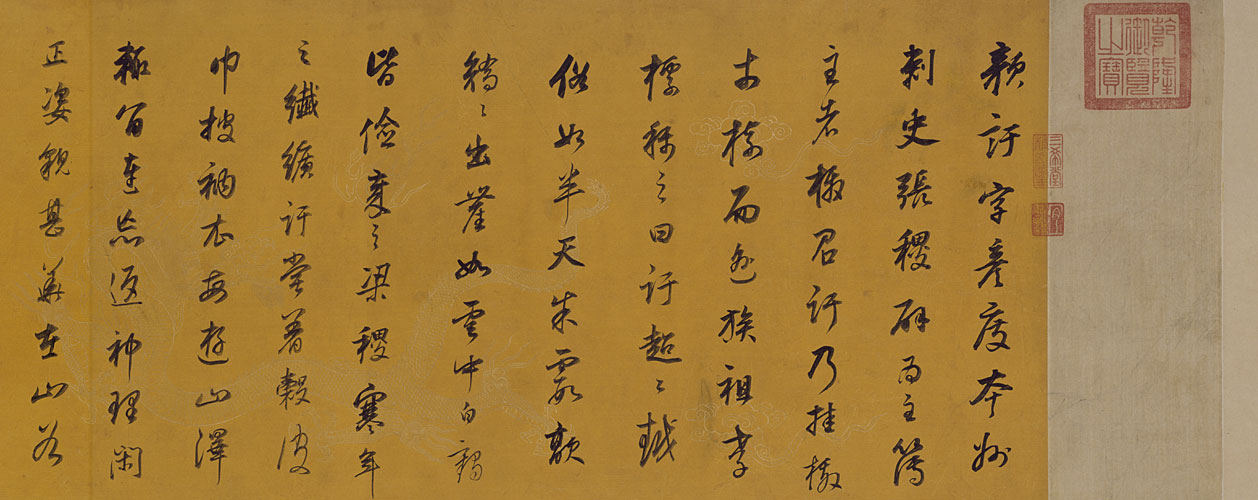 乾隆御覽之寶
三希堂精鑑璽
宜子孫
訏字彥度本州
刺史張稷辟為主簿
主者檄召訏乃挂檄
於樹而逃族祖孝
標稱之曰訏超〻越
俗如半天朱霞歊
矯〻出塵如雲中白鶴
皆儉歲之梁稷寒年
之纖纊訏嘗著穀皮
巾披衲衣每遊山澤
輒留連忘返神理閑
正姿貌甚華在山谷